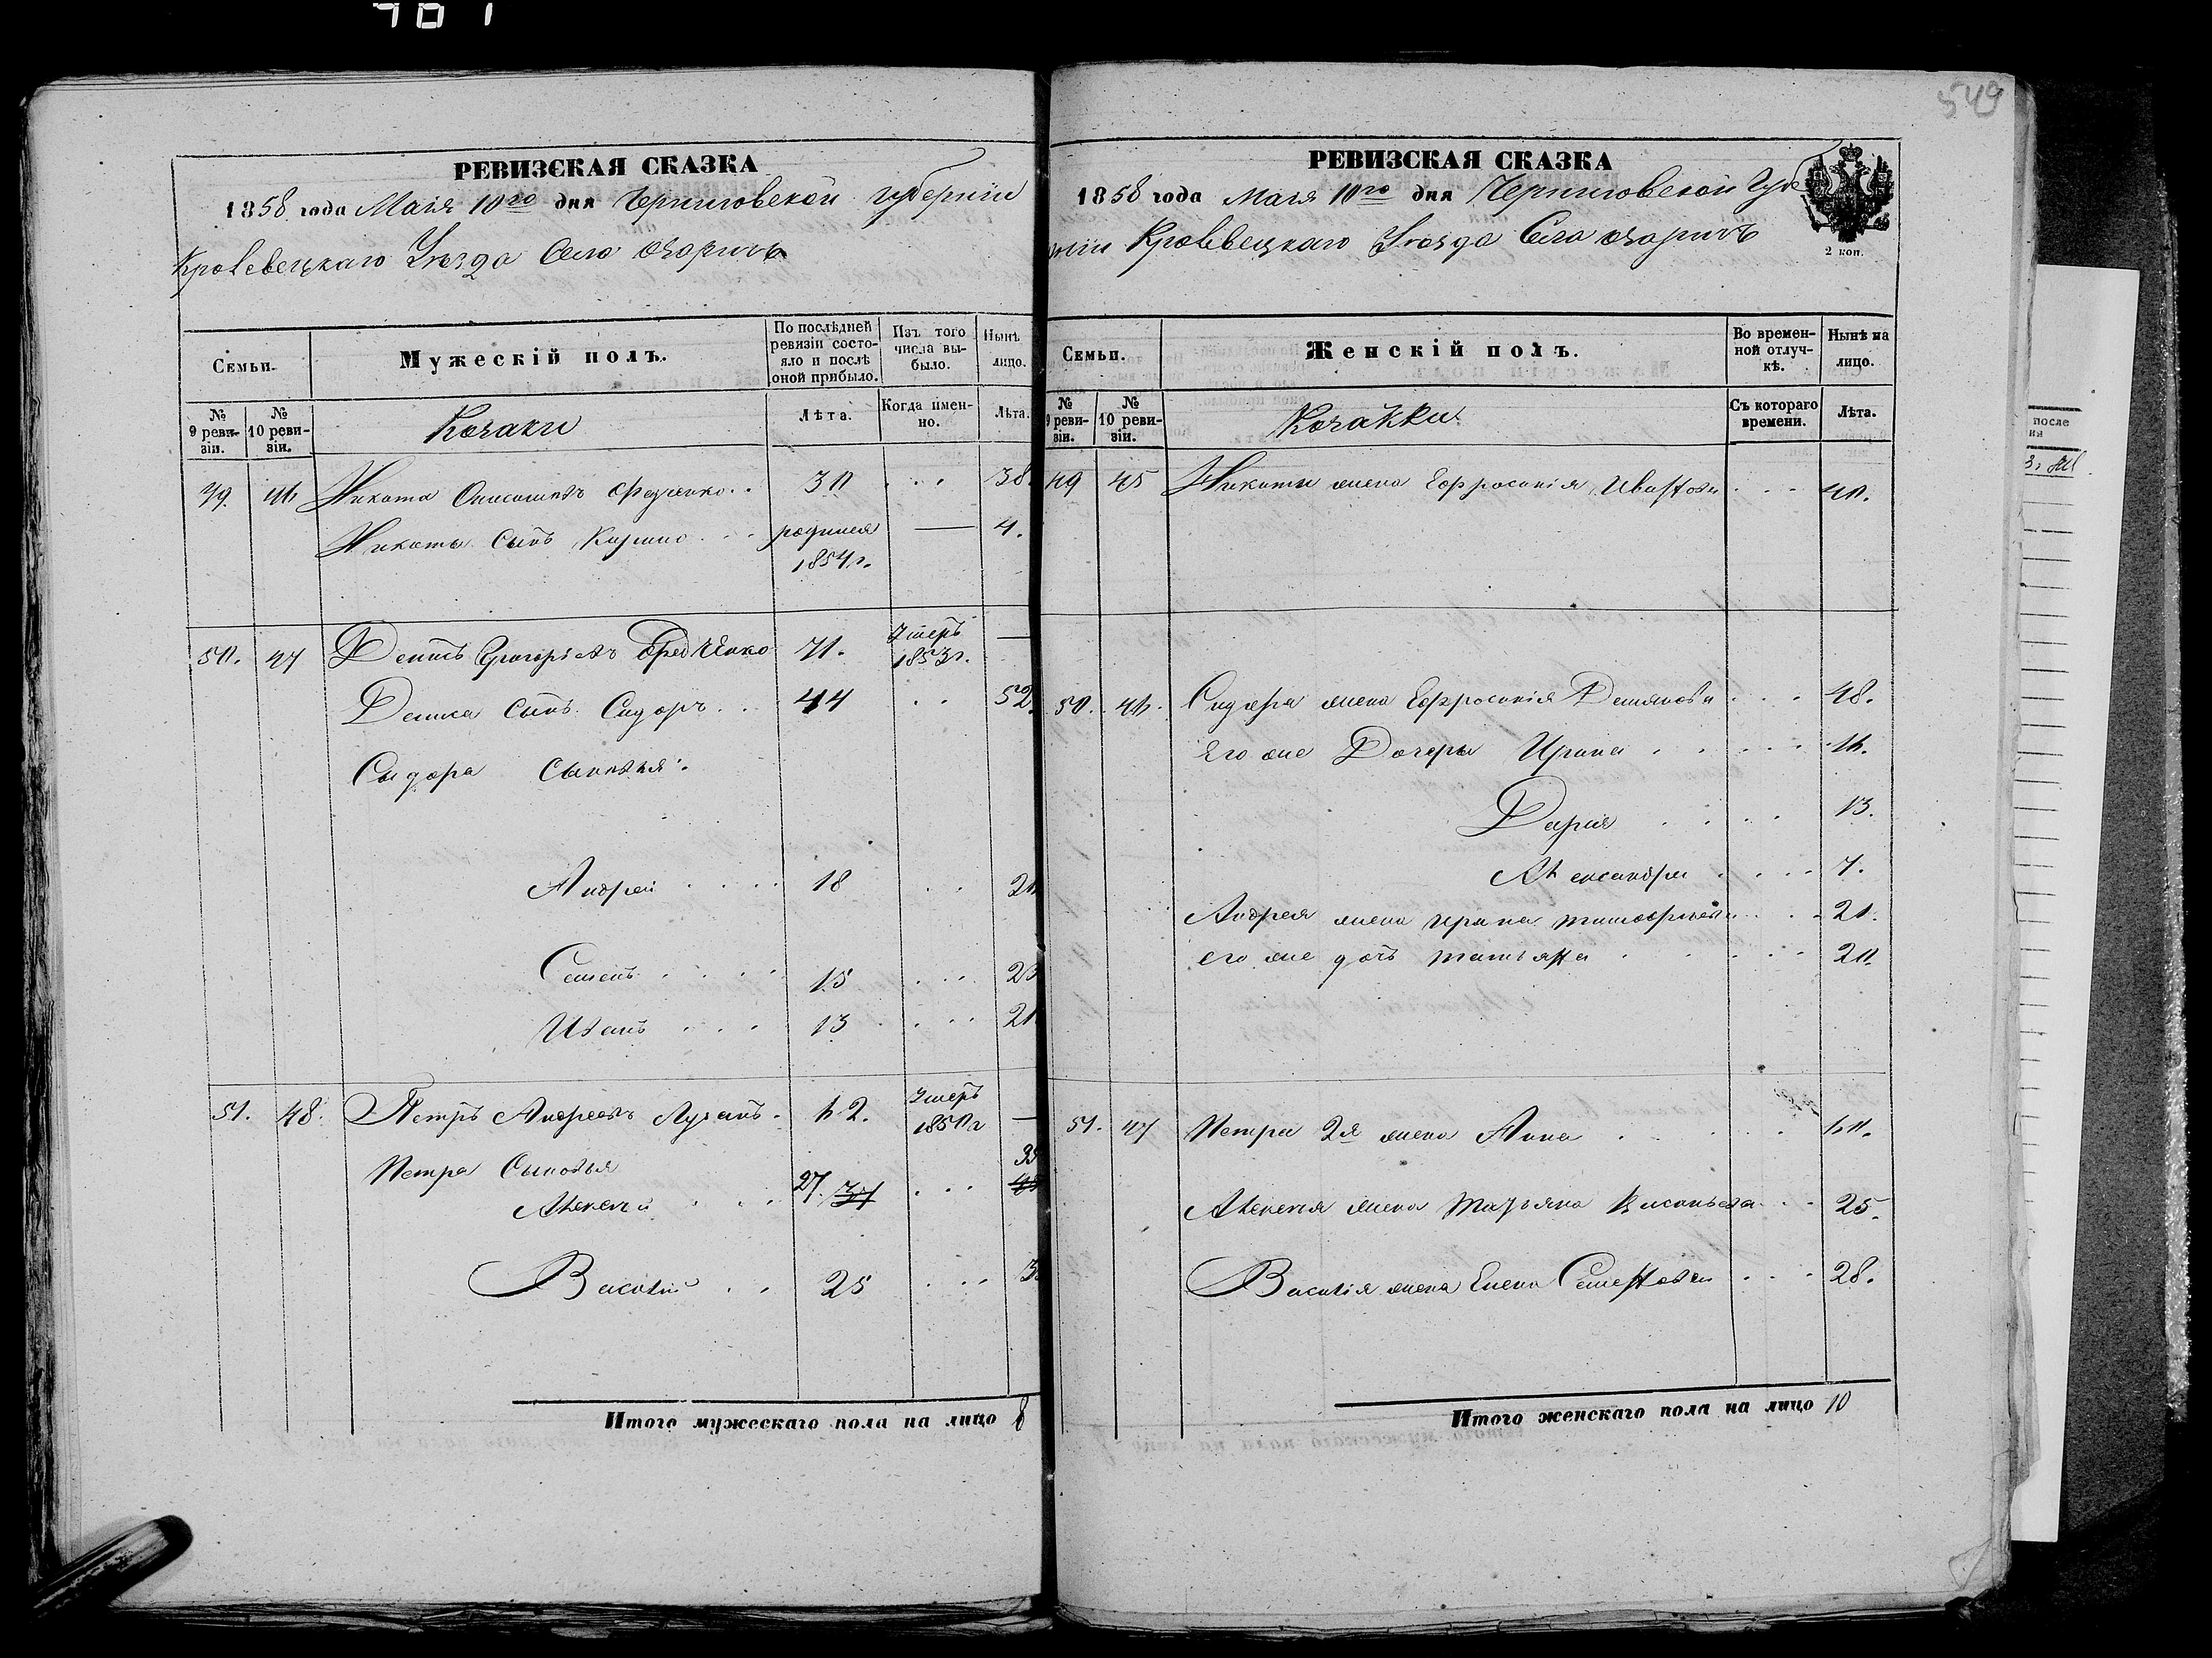 549
РЕВИЗСКАЯ СКАЗКА
1858 года Маія 10го дня Черниговской губерніи
Кролевецкаго Уезда Село Озаричъ
Семьи.
Мужескій полъ.
По послѣдней ревизіи состояло и послѣ оной прибыло.
Изъ того числа выбыло.
Нынѣ лицо.
№ 9 ревизіи.
№ 10 ревизіи.
Козаки
Лѣта.
Когда именно.
Лѣта.
49. 46 Никита Онисимовъ Федченко 30 38
Никиты сынъ Кирило родился 1854 г. — 4.
50. 47 Денисъ Григорьевъ Федченко 71. Умеръ 1853 г. —
Дениса сынъ Сидоръ 44 52
Сыдора сыновья:
Андрей 18
Семенъ 15 23
Иванъ 13 21
51. 48. Петръ Андреевъ Лузанъ 62. Умеръ 1850 г —
Петра Сыновья
Алексей 27. 37
Василій 25
Итого мужескаго пола на лицо 8
РЕВИЗСКАЯ СКАЗКА
1858 года Маія 10го дня Черниговской Губерніи Кролевецкаго Уезда Села Озаричъ
2 коп.
Семьи.
Женскій полъ.
Во временной отлучкѣ.
Нынѣ на лицо.
№ 9 ревизіи.
№ 10 ревизіи.
Козачки
Съ котораго времени.
Лѣта.
49 45 Никиты жена Ефросинія Ивановна 40.
50. 46. Сидора жена Ефросинія Демянова 48.
Его же Дочеры Ирина 16.
Дария 13.
Александра 7.
Андрея жена Ирина Тимофеева 21.
его же дочь Татьяна
51. 47 Петра 2я жена Анна 60.
Алексея жена Татьяна 25.
Василія жена Елена Семенова 28.
Итого женскаго пола на лицо 10
после